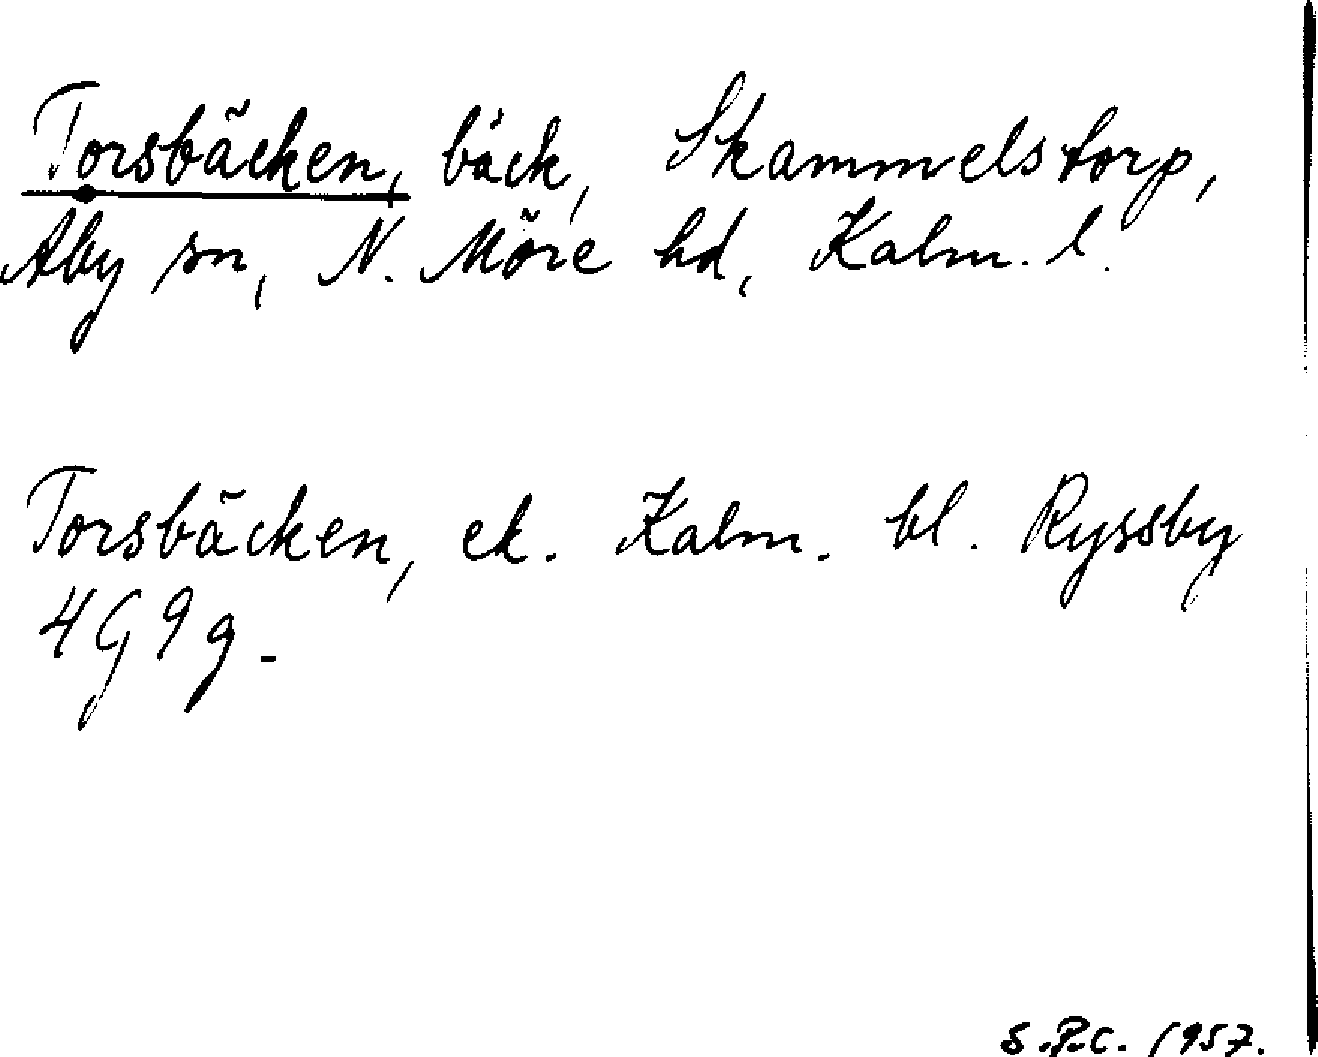 Torsbäcken, bäck, Skammelstorp,
Åby sn, N. Möre hd, Kalm. l.
Torsbäcken, ek. Kalm. bl. Ryssby
4G9g.
S.P.C. 1957.